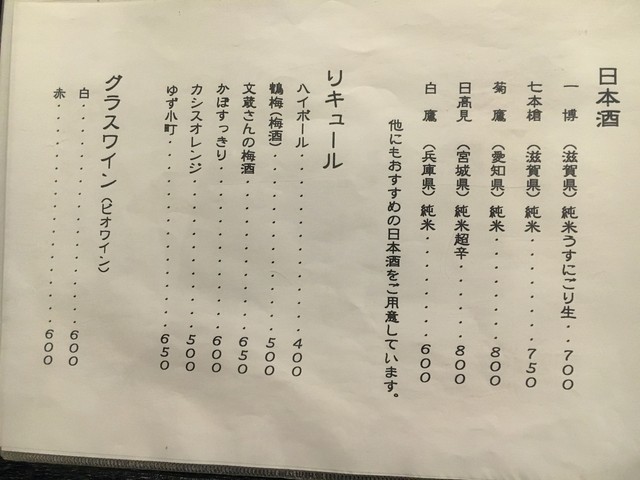 日本酒
一博 （滋賀県）純米うすにごり生・・700
七本槍 （滋賀県）純米・・・・・・・750
菊鷹 （愛知県）純米・・・・・・・800
日高見 （宮城県）純米超辛・・・・・800
白鷹 （兵庫県）純米・・・・・・・600
他にもおすすめの日本酒をご用意しています。
リキュール
ハイボール・・・・・・・・・・・・400
鶴梅（梅酒）・・・・・・・・・・・500
文蔵さんの梅酒・・・・・・・・・・650
かぼすっきり・・・・・・・・・・・600
カシスオレンジ・・・・・・・・・・500
ゆず小町・・・・・・・・・・・・・650
グラスワイン（ビオワイン）
白・・・・・・・・・・・・・・・・600
赤・・・・・・・・・・・・・・・・600